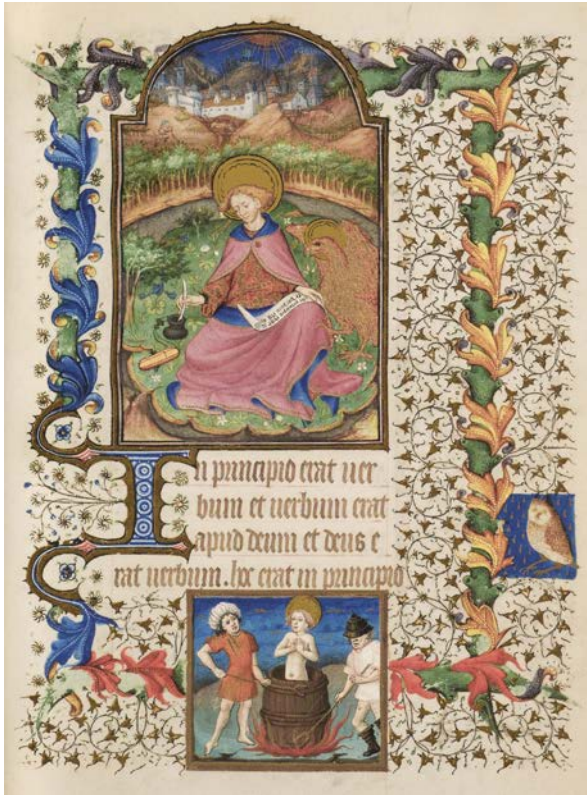 In principio erat uer
bum et uerbum erat
apud deum et deus e
rat uerbum. hoc erat in principio